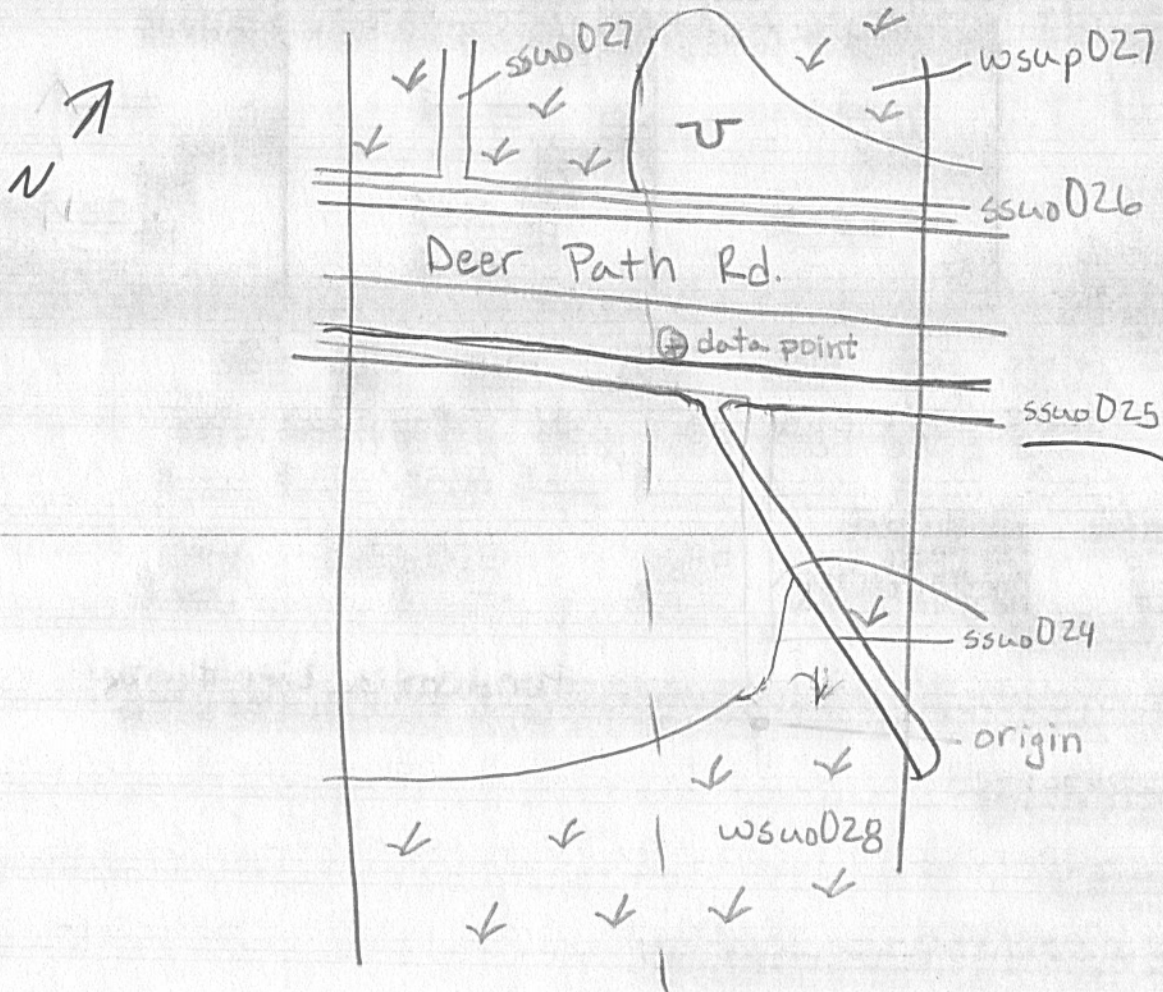 ssuo027
wsup027
N
U
ssuo026
Deer Path Rd.
data point
ssuo025
ssuo024
origin
wsuo028